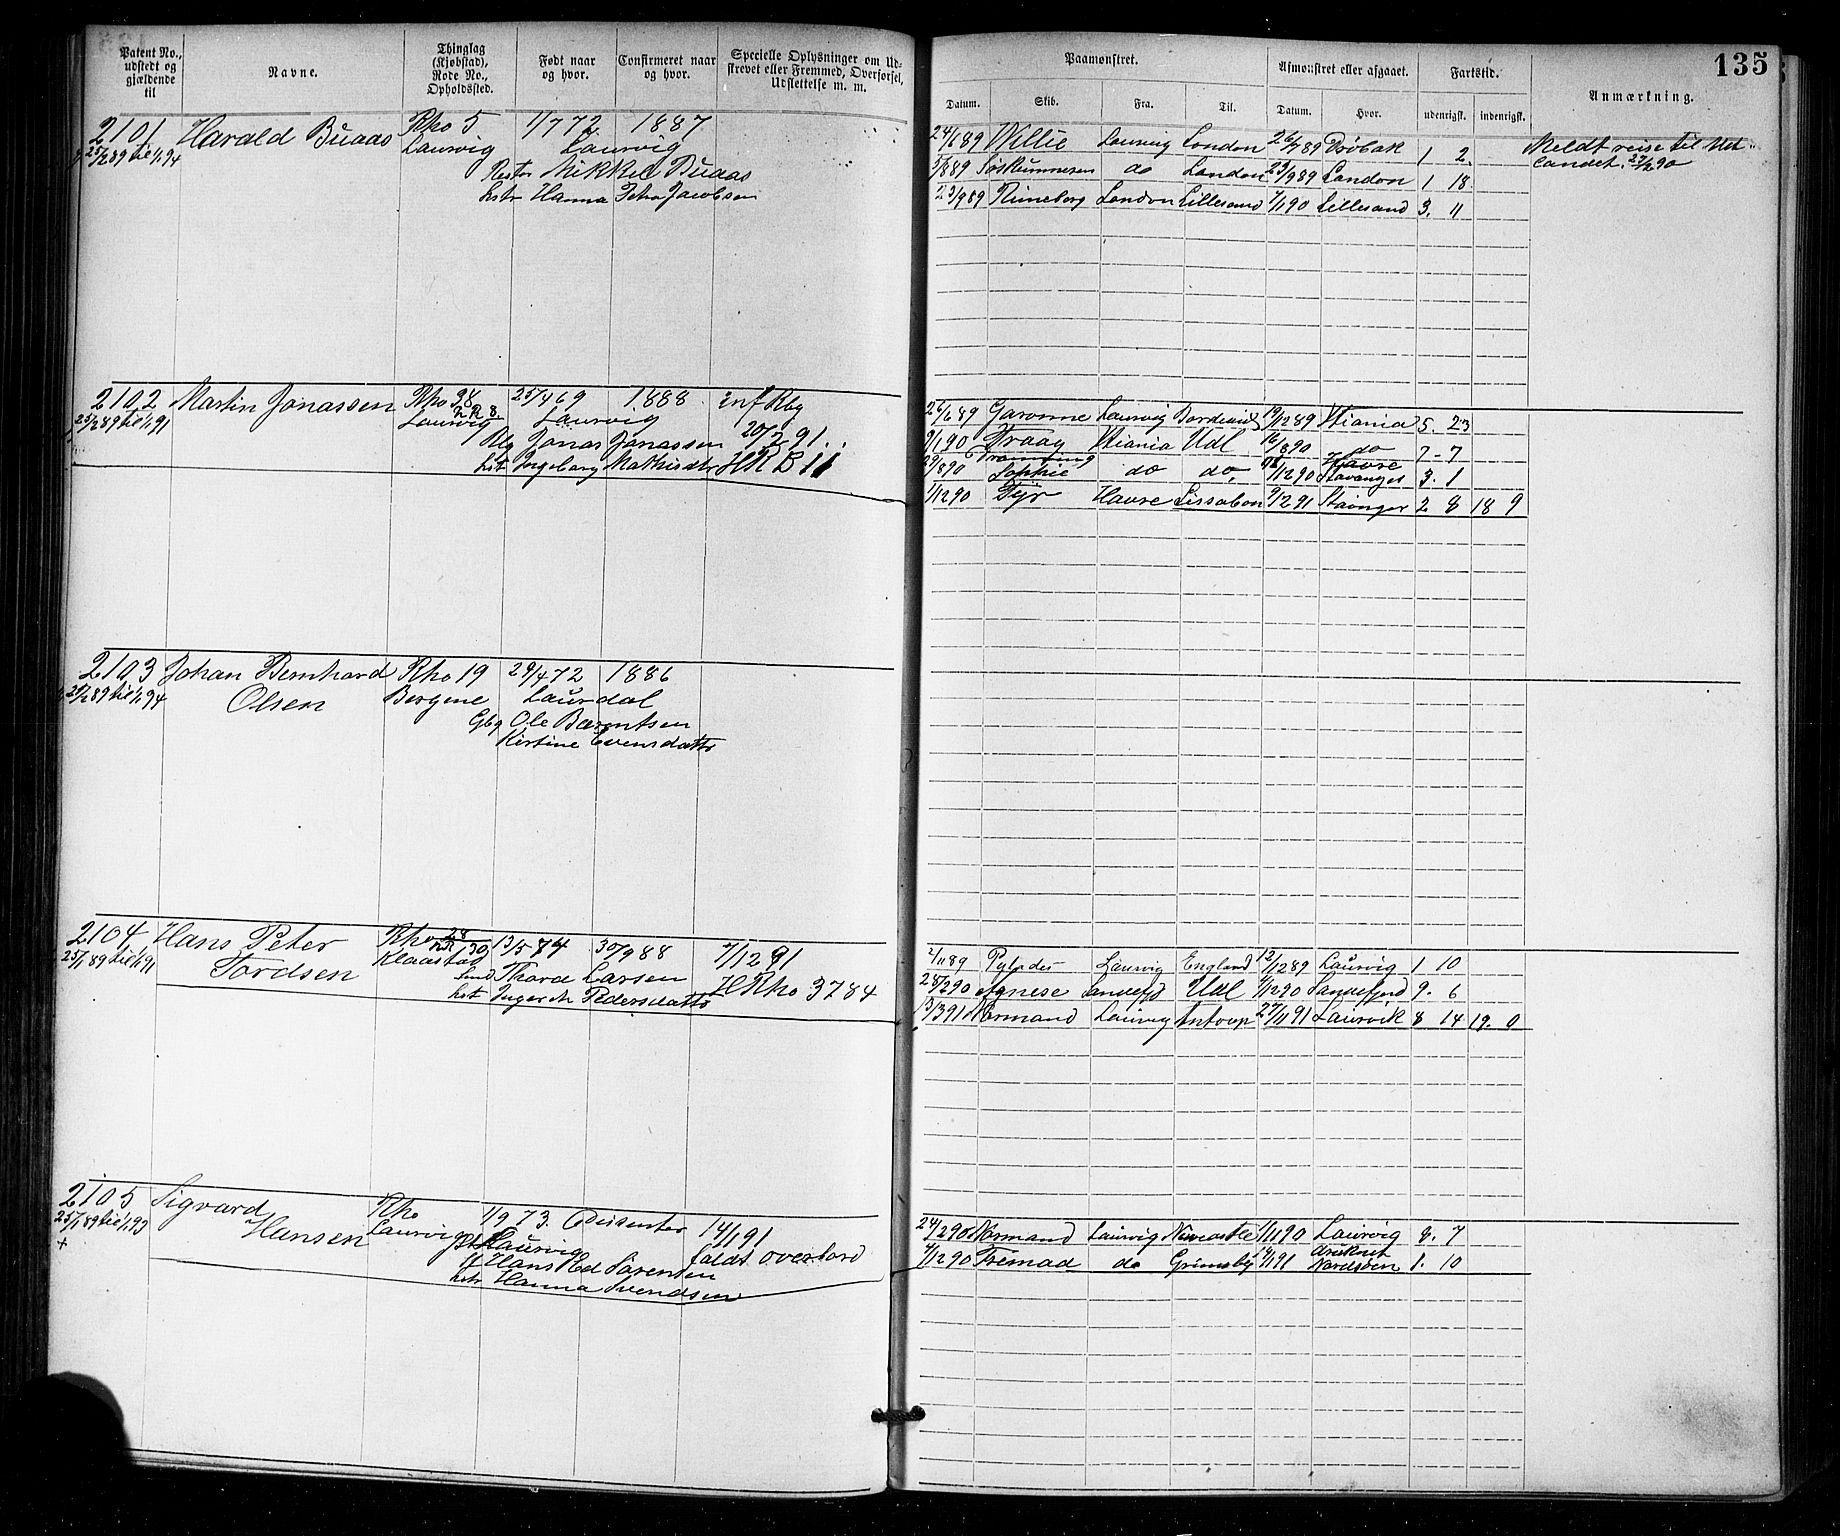 Patent No., udstedt og gjældende til
Navne.
Thinglag (Kjøbstad), Rode No., Opholdssted.
Født naar og hvor.
Confirmeret naar og hvor.
Specielle Oplysninger om Udstrevet eller Fremmed, Overførsel, Udslettelse m. m.
Paamønstret.
Datum. Skib. Fra. Til.
Afmønstret eller afgaaet.
Datum. Hvor.
Fartstid.
udenrigst. indenrigst.
Anmærkning.
135
2101 Harald Buaas Rho 5 1/7 72 1887
25/2 89 til 1/1 94 Laurvig Laurvig
Mikkel Buaas
Hanna Petra Jacobsen
24/6 89 Willie Laurvig London 26/7 89 Drøbak 1 2 Meldt reise til Ud
5/8 89 do London 23/9 89 London 1 18 landet 27/2 90
23/9 89 London Lillesand 7/1 90 Lillesand 3. 11
2102 Martin Jonassen Rho 98 25/4 69 1888 Inf Rbg
25/2 89 til 1/1 91 Laurvig Laurvig
Rbg Jonas Jonassen 20/2 91.
Ingeborg Mathisdtr HR B 11
26/6 89 Garonne Laurvig 19/12 89 Xtiania 5. 23
9/1 90 Traag Xtiania Udl 16/8 90 do 7-7
29/8 90 Sophie do do, 1/12 90 Havre Stavanger 3. 1
1/12 90 Tyr Havre Lissabon 9/2 91 Stavnger 2 8 18 9
2103 Johan Bernhard Rho 19 29/4 72 1886
til 1/1 94 Olsen Bergene Laurdal
Gbg Ole Barentsen
Kirstine Evensdattr
2104 Hans Peter Rho 28 13/5 74 30/9 88 7/12 91
25/1 89 til 1/1 91 Tordsen Klaastad
Thord Larsen HRho 3784
Pedersdattr
2/11 89 Pylades Laurvig England 12/12 89 Laurvig 1 10
28/2 90 Agnese Sandefjd Udl 1/12 90 Sandefjord 9. 6
13/3 91 Normand Laurvig Antvrp 27/11 91 Laurvik 8 14 19. 0
2105 Sigvard Rho 1/9 73. Dissenter 14/1 91
25/1 89 til 1/1 93 Hansen Laurvig Laurvig faldt overbord
+
Hans Ed Sørensen
Hanna Svendsen
24/2 90 Normand Laurvig Newcastle 1/11 90 Laurvig 8. 7
4/12 90 Fremad do Grimsby 14/1 91 druknet Nordsøen 1. 10